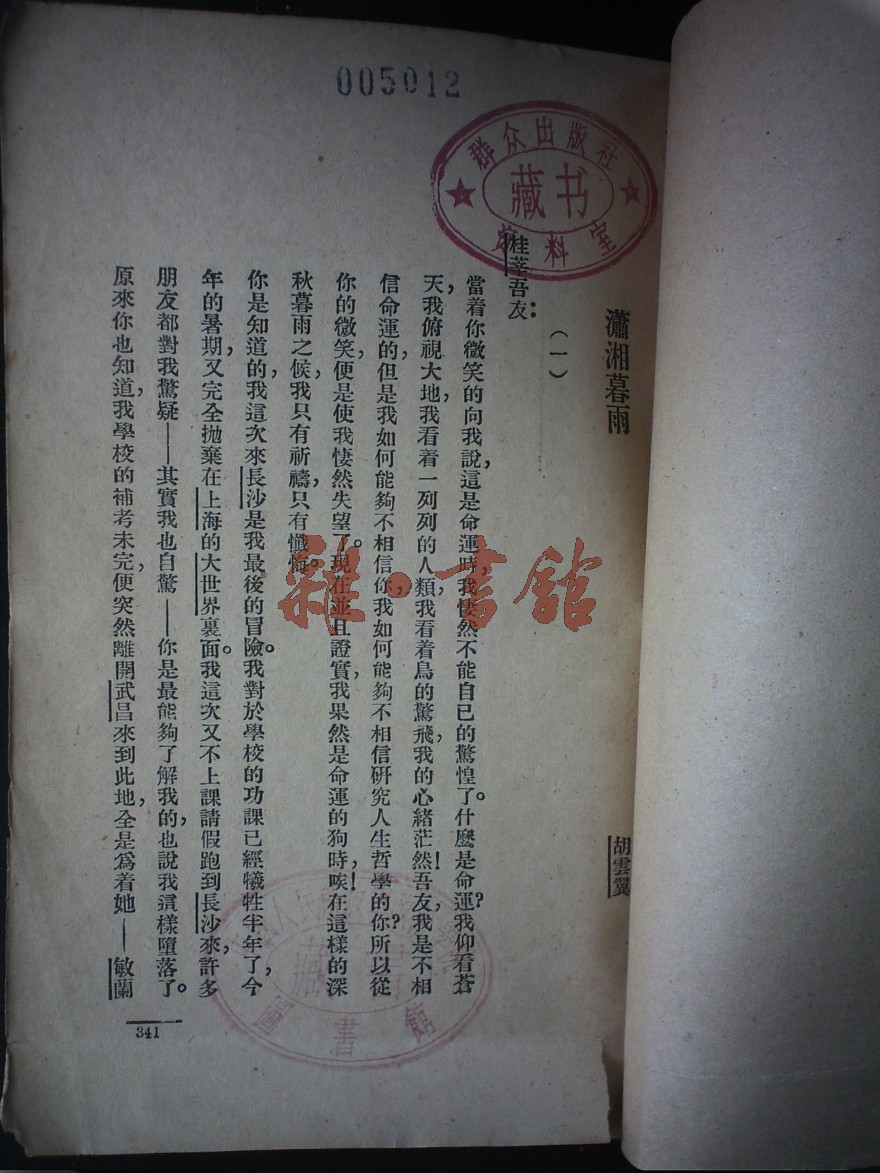 005012
群众出版社
藏书
资料室
瀟湘暮雨
胡雲翼
(一)
桂莘吾友：
當着你微笑的向我說，這是命運時，我悽然不能自已的驚惶了。什麼是命運？我仰看蒼
天，我俯視大地，我看着一列列的人類，我看着鳥的驚飛，我的心緒茫然！吾友，我是不相
信命運的，但是我如何能夠不相信你，我如何能夠不相信研究人生哲學的你？所以從
你的微笑，便是使我悽然失望了。現在並且證實，我果然是命運的狗時，唉！在這樣的深
秋暮雨之候，我只有祈禱，只有懺悔。
你是知道的，我這次來長沙是我最後的冒險。我對於學校的功課已經犧牲半年了，今
年的暑期，又完全拋棄在上海的大世界裏面。我這次又不上課請假跑到長沙來，許多
朋友都對我驚疑——其實我也自驚——你是最能夠了解我的，也說我這樣墮落了。
原來你也知道，我學校的補考未完，便突然離開武昌來到此地，全是爲着她——敏蘭
341
人民
藏書
圖書館
雜·書館